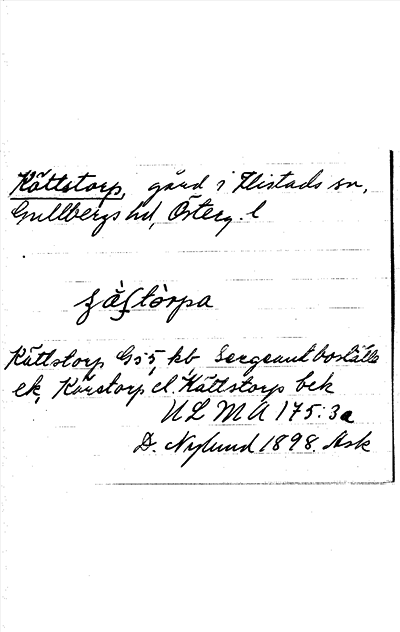 Kättstorp, gård i Flistads sn,
Gullbergs hd, Österg. l
Kättstorp G 5 5, kb Sergeantboställe
ek, Kärstorp el. Kättstorp bek
ULMA 175:3a
D. Nylund 1898. Ask